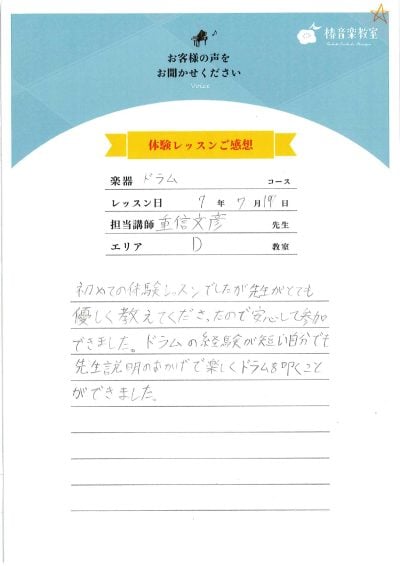 椿音楽教室
お客様の声を
お聞かせください
Voice
体験レッスンご感想
楽器 ドラム コース
レッスン日 7 年 7 月 19 日
担当講師 重信文彦 先生
エリア D 教室
初めての体験レッスンでしたが先生がとても
優しく教えてくださったので安心して参加
できました。ドラムの経験が短い自分でも
先生説明のおかげで楽しくドラムを叩くこと
ができました。